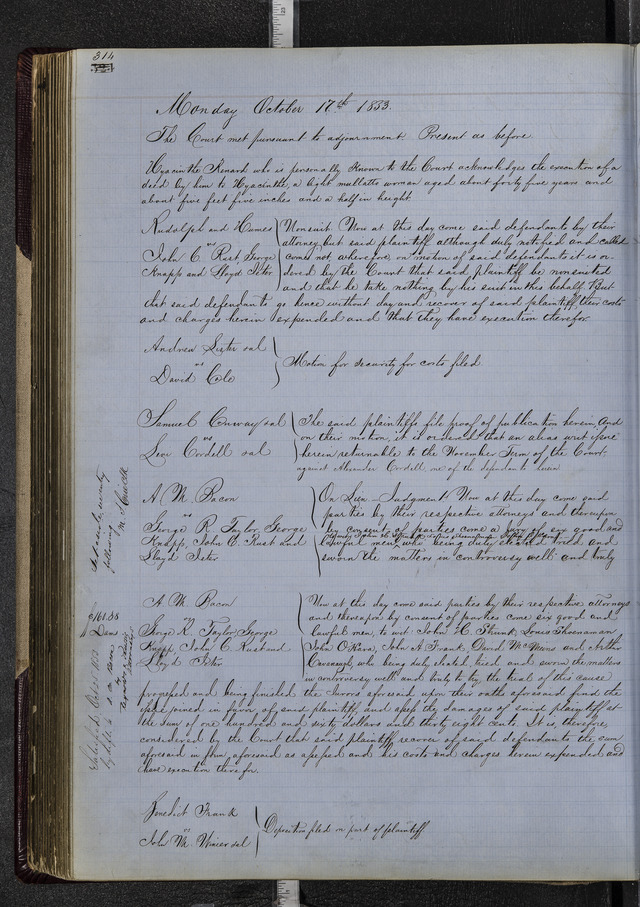 314
Monday October 17th 1853.
The Court met pursuant to adjournment Present as before
Hyacinthe Renard who is personally Known to the Court acknowledges the execution of a
deed by him to Hyacinthe, a light mullatto woman aged about forty five years and
about five feet five inches and a half in height
Rudolph and Humes
vs
John C Rust George
Knapp and Lloyd Ister
Nonsuit Now at this day come said defendants by their
attorney but said plaintiff although duly notified and called
comes not wherefore on motion of said defendants it is or-
dered by the Court that said plaintiff be nonsuited
and that he take nothing by his suit in this behalf But
that said defendants go hence without day and recover of said plaintiff their costs
and charges herein expended and that they have execution therefor
Andrew Lister et al
vs
David Cole
Motion for security for costs filed
Samuel Conway et al
vs
Levi Cordell et al
The said plaintiffs file proof of publication herein And
on their motion, it is ordered that an alias writ issue
herein returnable to the November Term of the Court
against Alexander Cordell one of the defendants herein
A. M. Bacon
vs
George R Taylor George
Knapp, John C Rust and
Lloyd Ister
On Judgment Now at this day come said
parties by their respective attorneys and thereupon
by consent of parties come a jury of six good and
lawful men who being duly elected tried and
sworn the matters in controversy well and truly
following
A. M. Bacon
vs
George R Taylor George
Knapp, John C Rust and
Lloyd Ister
Now at this day come said parties by their respective attorneys
and thereupon by consent of parties come six good and
lawful men, to wit John H. Shunk Louis Shoenaman
John O'Hara, John A Frank David McManus and Arthur
Cavenaugh who being duly elected, tried and sworn the matters
in controversy well and truly to try the trial of this cause
progressed and being finished the Jurors aforesaid upon their oaths aforesaid find the
issue joined in favor of said plaintiff and assess the damages of said plaintiff at
the sum of one hundred and sixty dollars and thirty eight cents It is, therefore,
considered by the Court that said plaintiff recover of said defendants the sum
aforesaid in form aforesaid as assessed and his costs and charges herein expended and
have execution therefor.
Dam
Benedict Frank
vs
John M. et al
Deposition filed on part of plaintiff